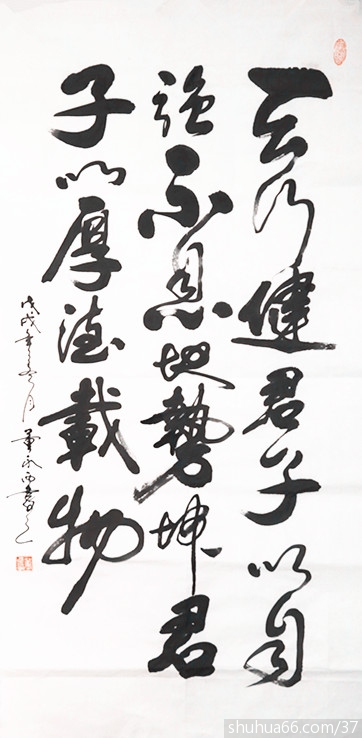 天行健君子以自
強不息地勢坤君
子以厚德載物
戊戌年月書
shuhua66.com/37